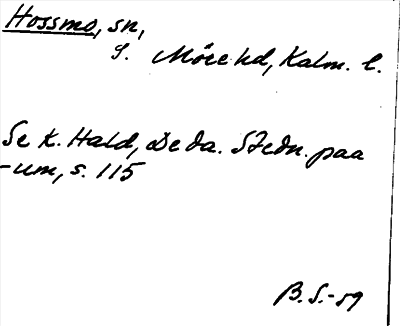 Hossmo, sn,
S. Möre hd, Kalm. l.
Se K. Hald, De da. Stedn. paa
-um, s. 115
B. S.-59